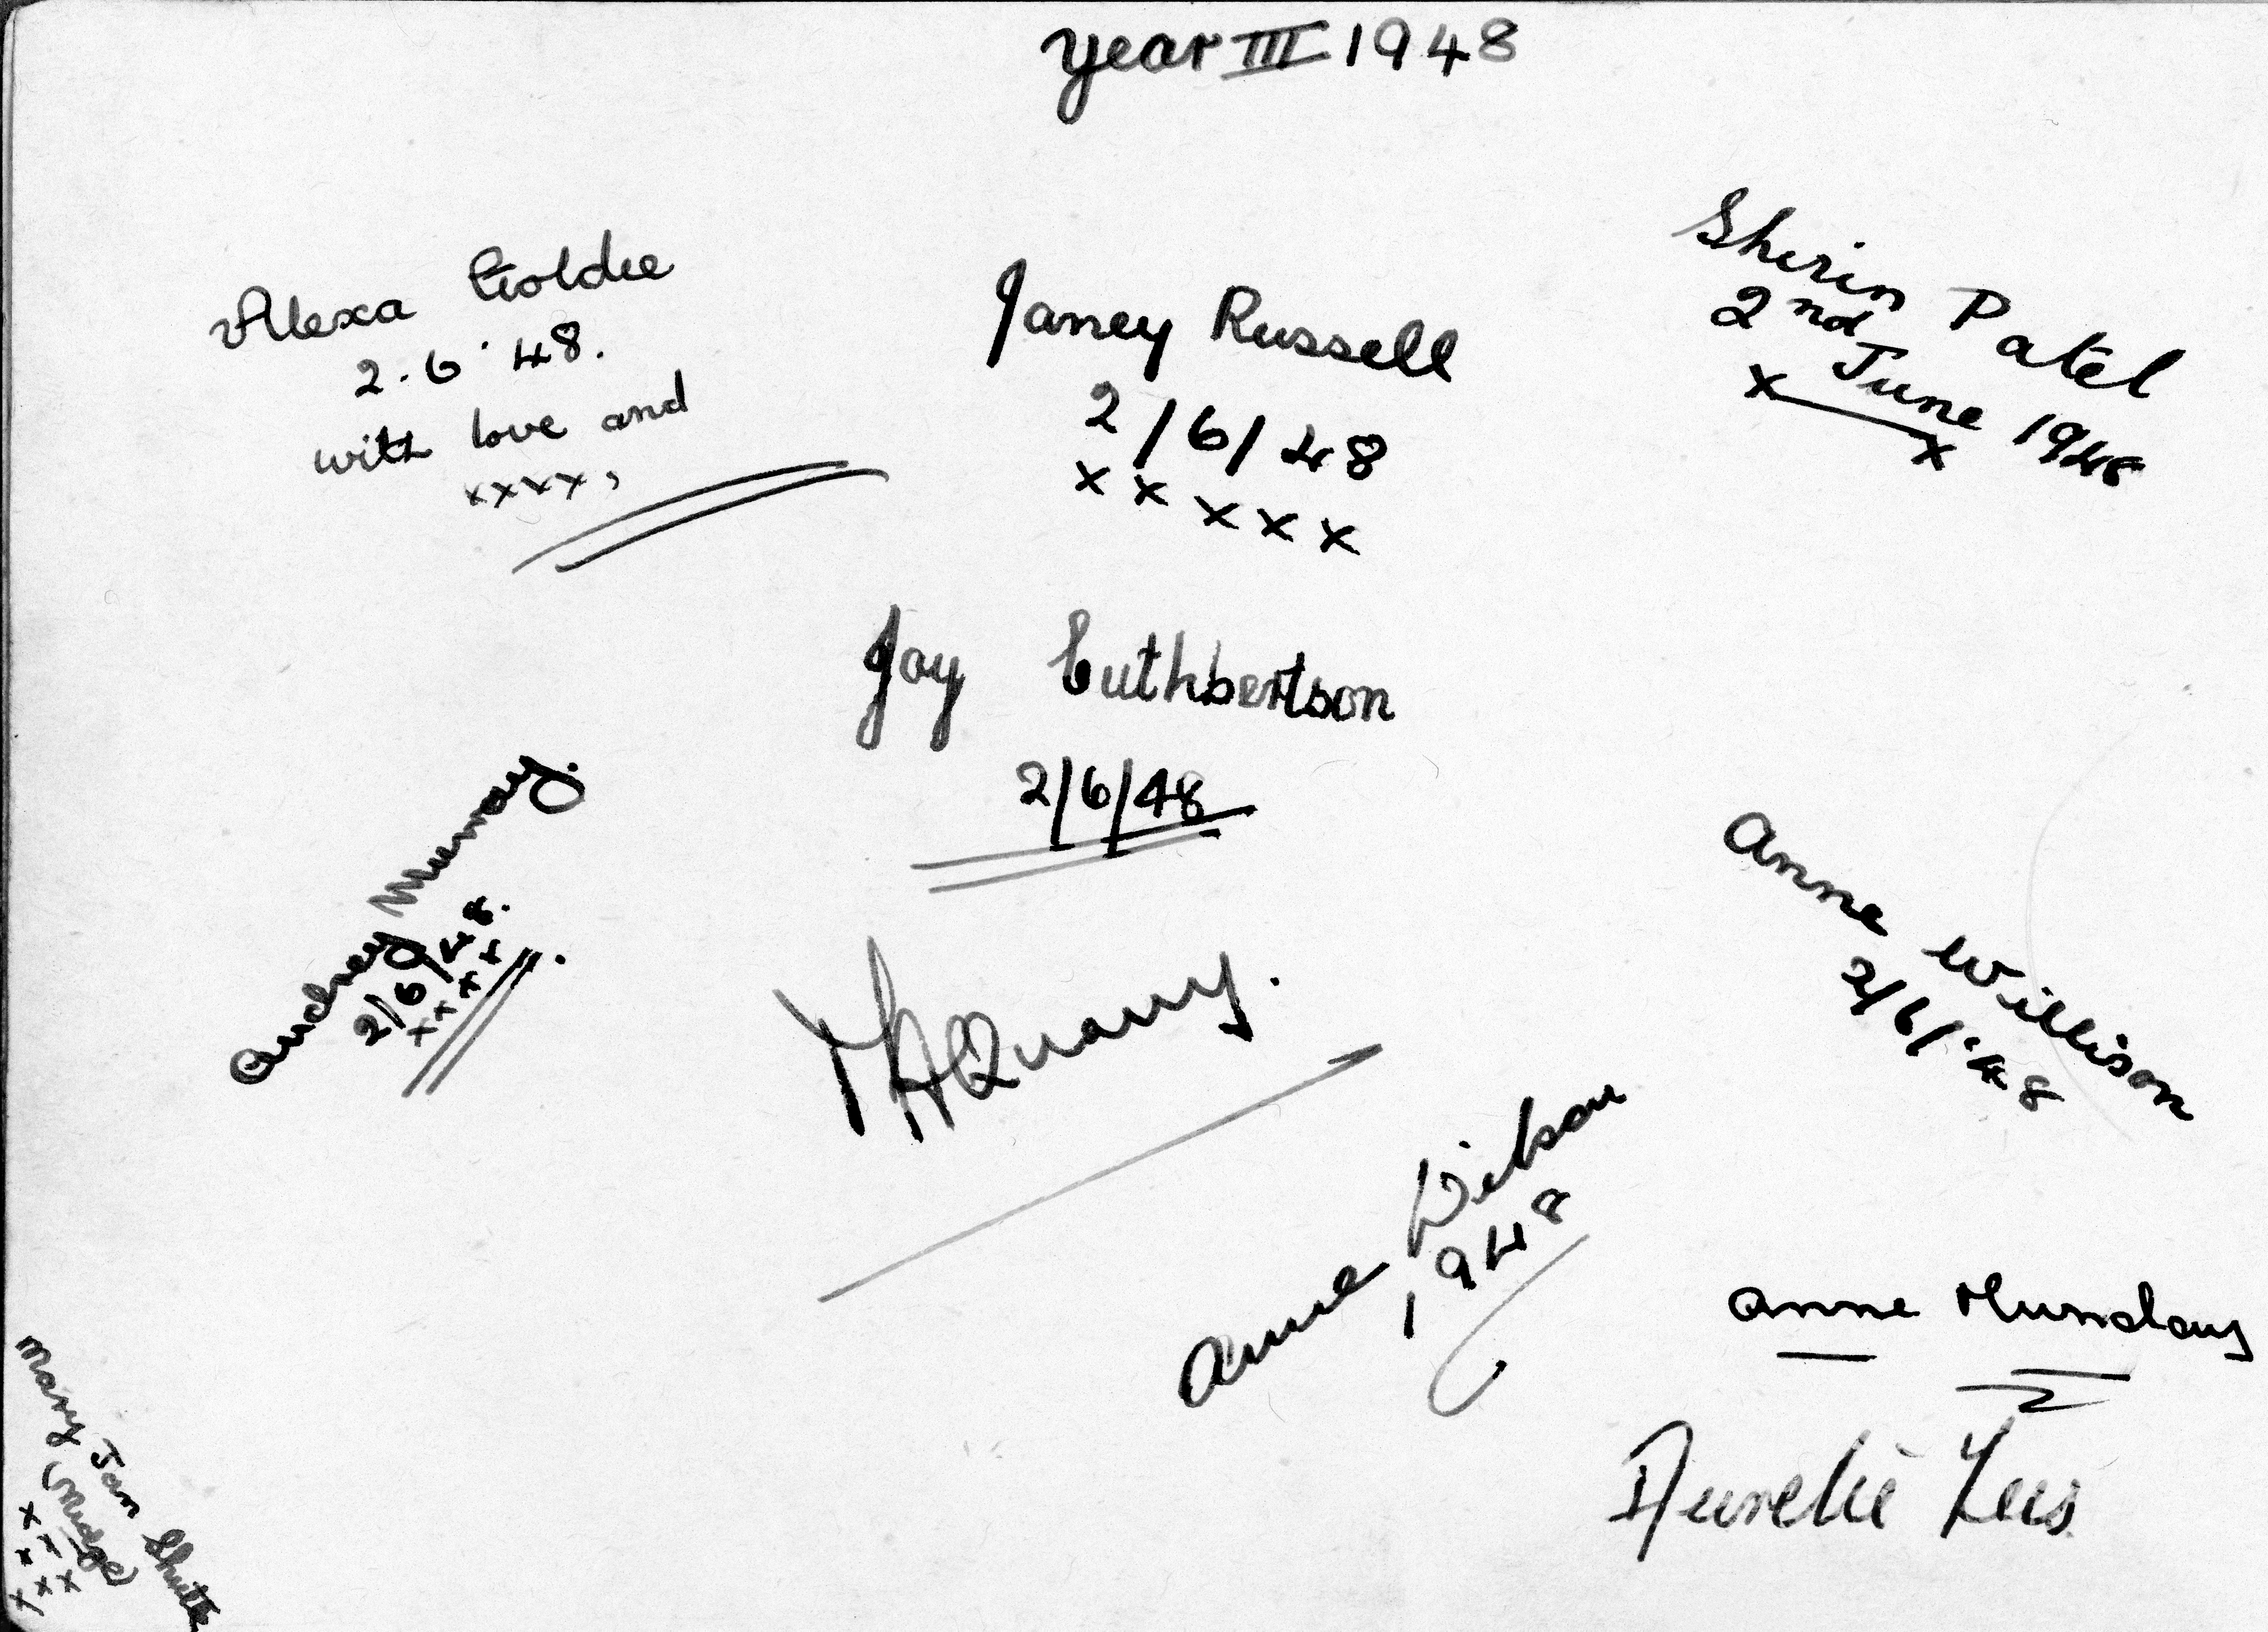 Year III 1948
Alexa Goldie
2.6.48.
with love and
xxxx,
Janey Russell
2/6/48
x x x x x
Shirin Patel
2nd June 1948
x x
Joy Cuthbertson
2/6/48
Audrey Murray.
2/6/48.
x x x x
Anne Willison
2/6/'48
Anne
1948
Anne Munday
Mary Jan Shute
(Midge)
x x x
x x x